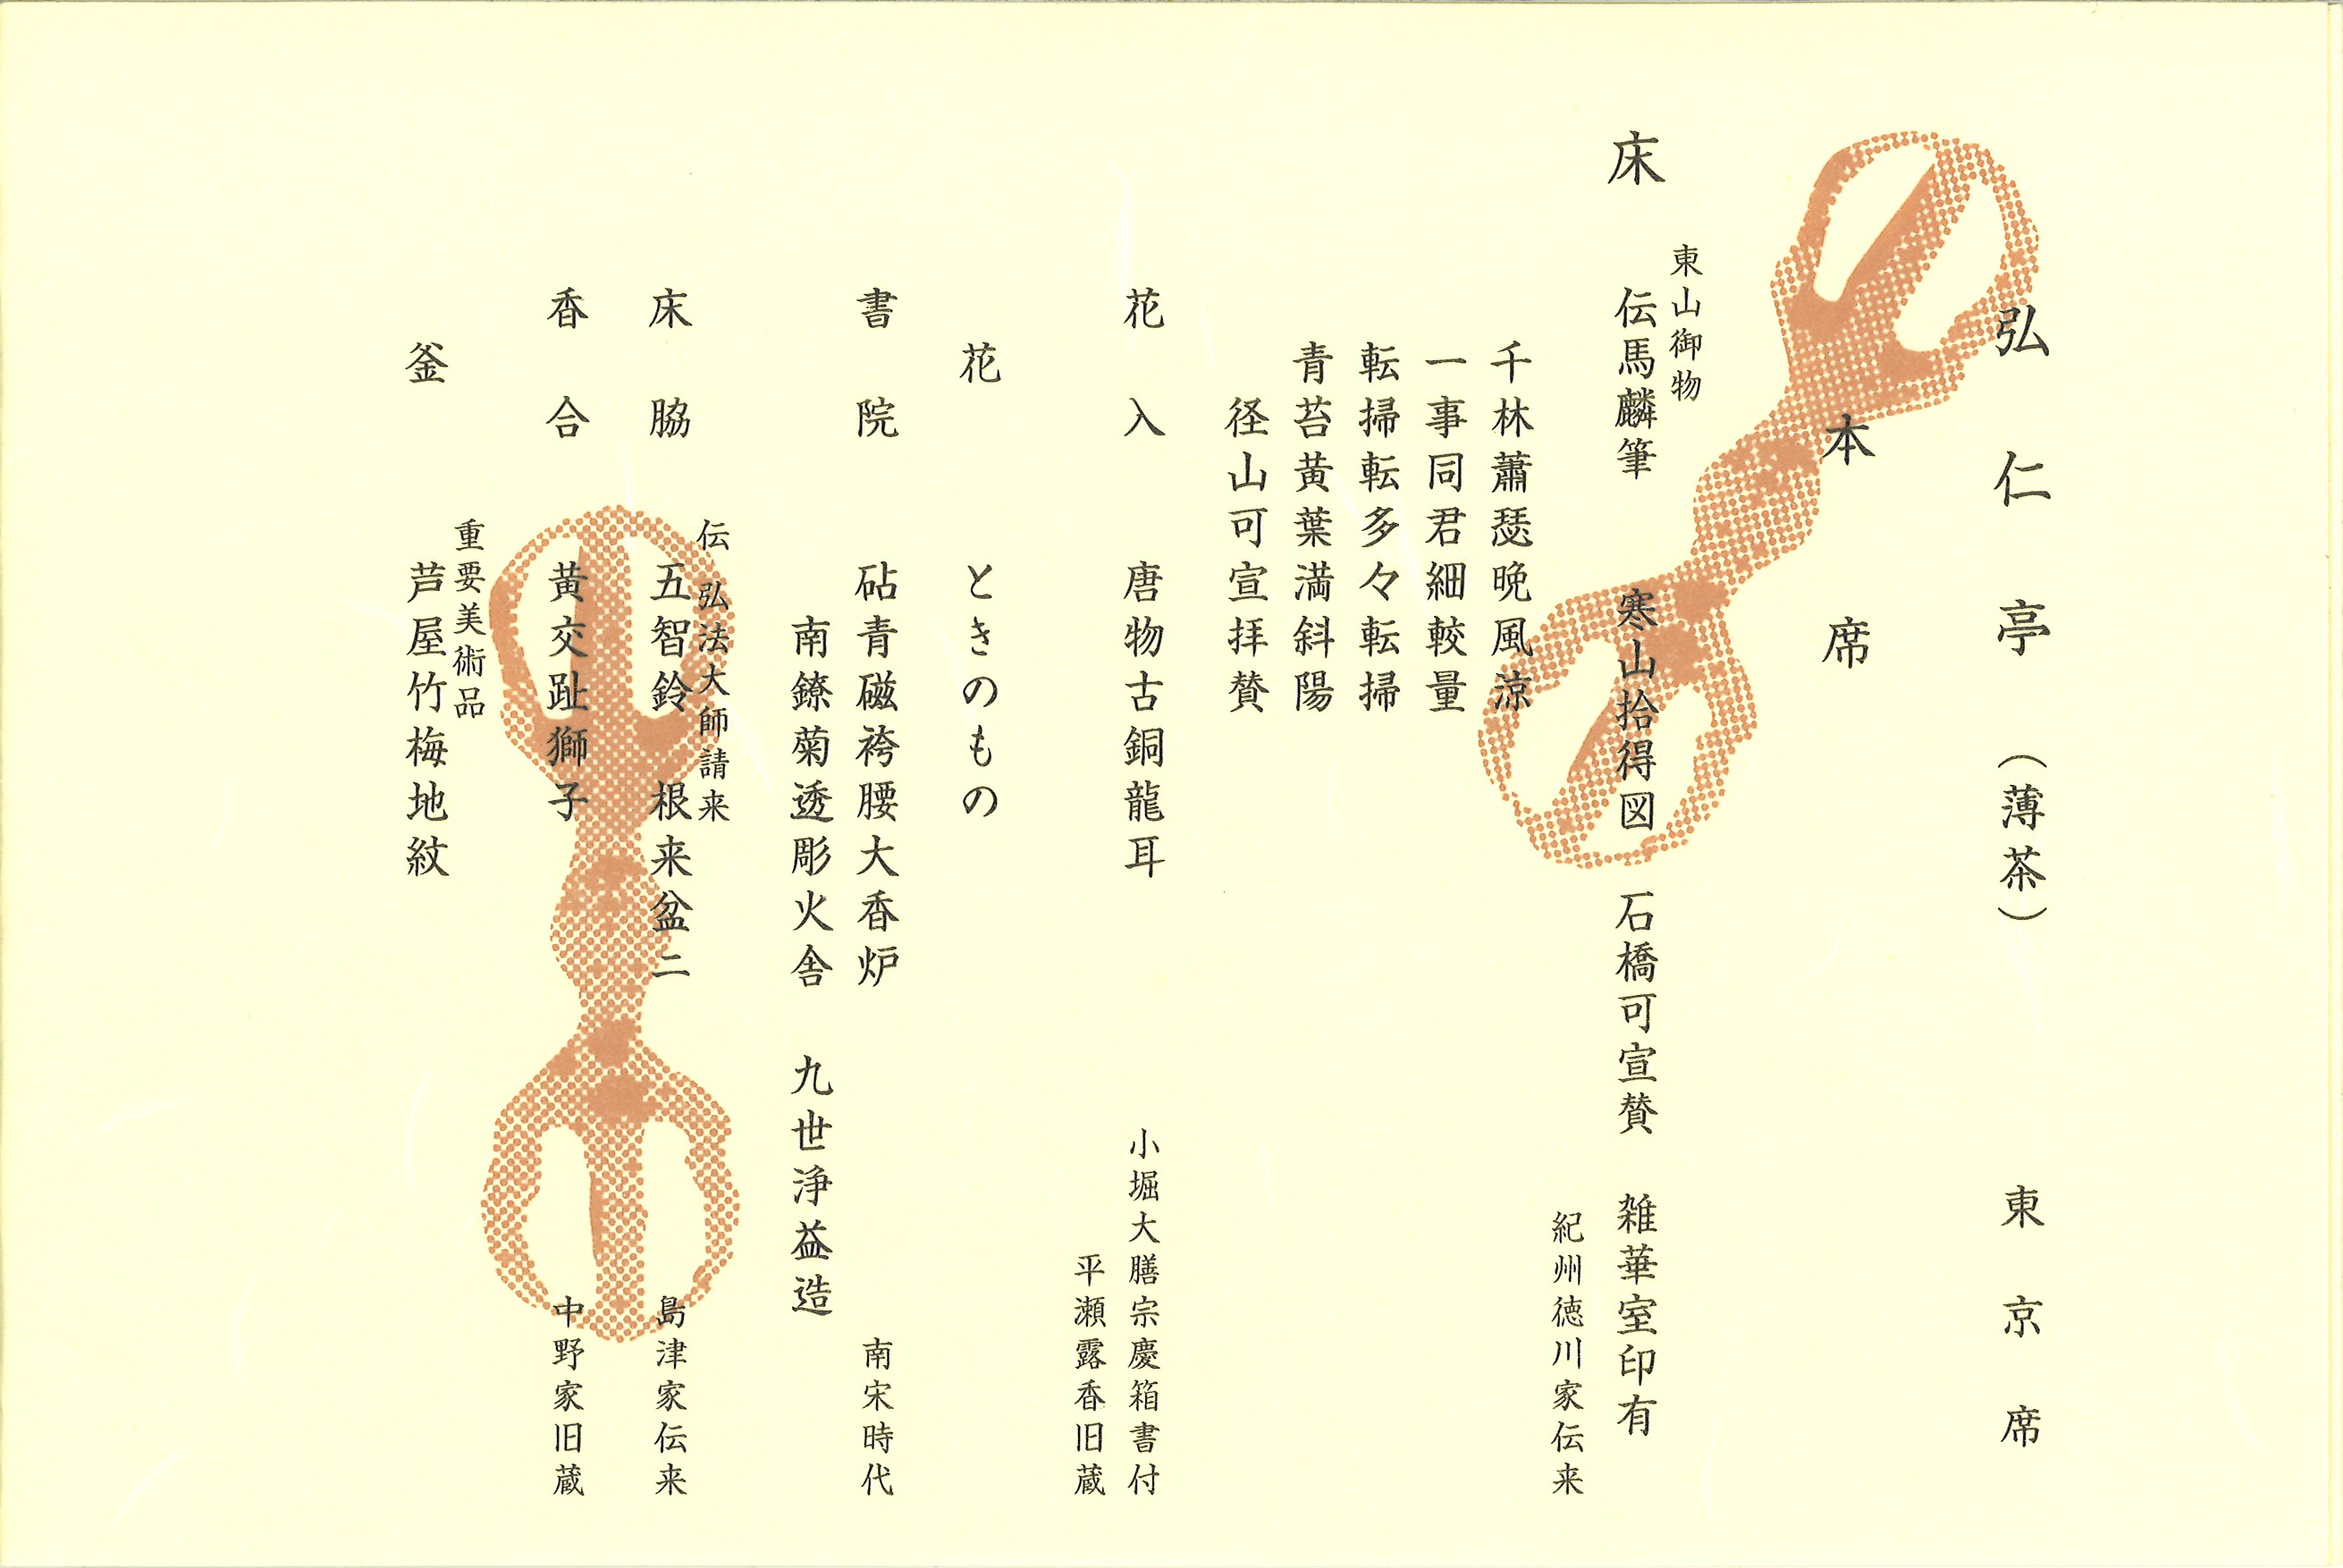 弘仁亭（薄茶）　東京席
本席
床　東山御物
伝馬麟筆　寒山拾得図　石橋可宣賛　雑華室印有
紀州徳川家伝来
千林蕭瑟晩風涼
一事同君細較量
転掃転多々転掃
青苔黄葉満斜陽
径山可宣拝賛
花入　唐物古銅龍耳　小堀大膳宗慶箱書付
平瀬露香旧蔵
花　ときのもの
書院　砧青磁袴腰大香炉　南宋時代
南鐐菊透彫火舎　九世浄益造
伝　弘法大師請来
床脇　五智鈴　根来盆ニ　島津家伝来
香合　黄交趾獅子　中野家旧蔵
重要美術品
釜　芦屋竹梅地紋